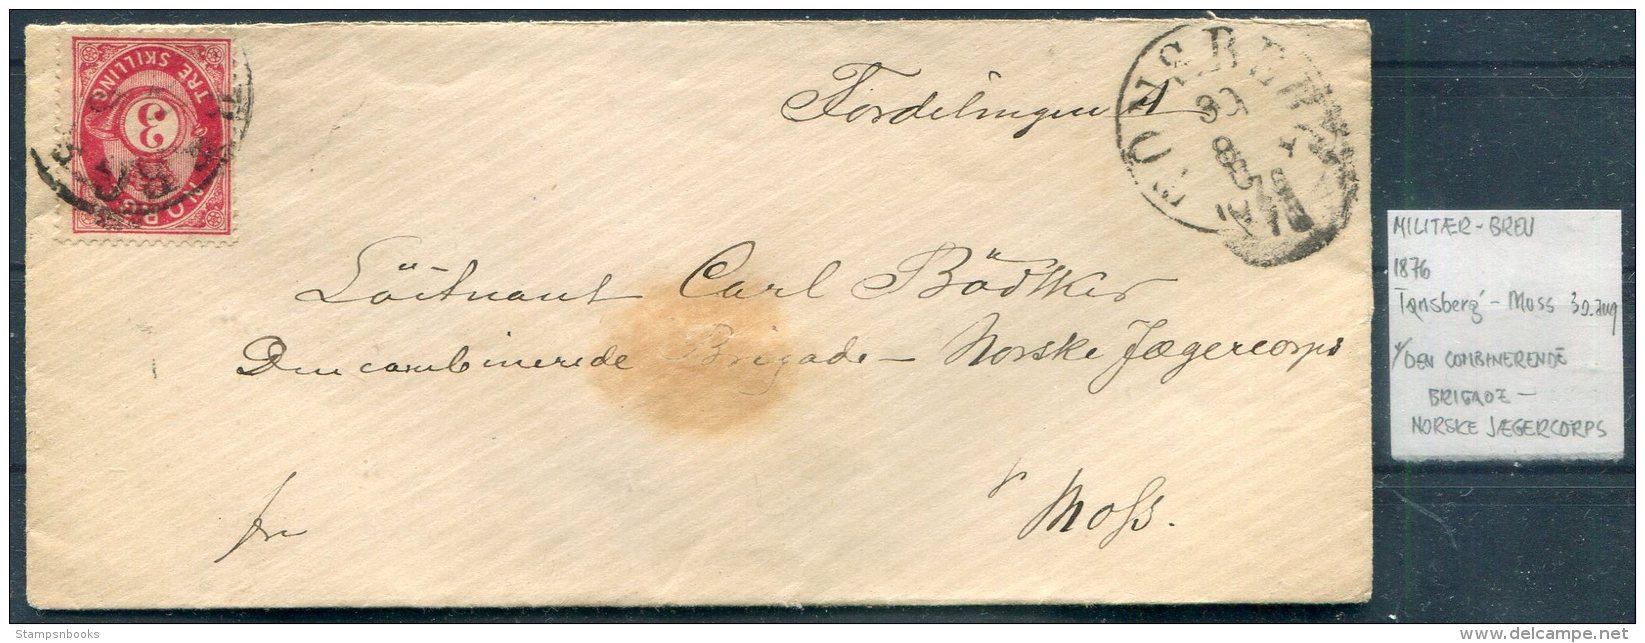 TRE SKILLING
3
NORGE
Fördelingen A
TONSBERG
30
8
Löitnant Carl Bödtker
Den combinerede Brigade – Norske Jægercorps
fr
Moss.
MILITÆR - BREV
1876
Tønsberg - Moss 30. aug
DEN COMBINERENDE
BRIGADE -
NORSKE JÆGERCORPS
Stampsnbooks
delcampe.net